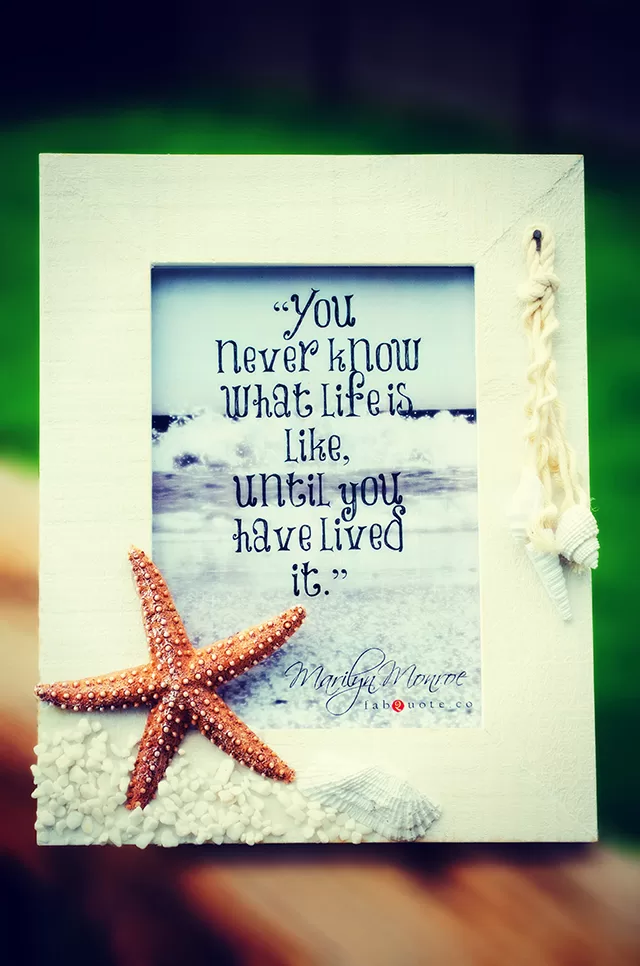 “You
never know
what life is
like,
until you
have lived
it.”
Marilyn Monroe
fabQuote.co